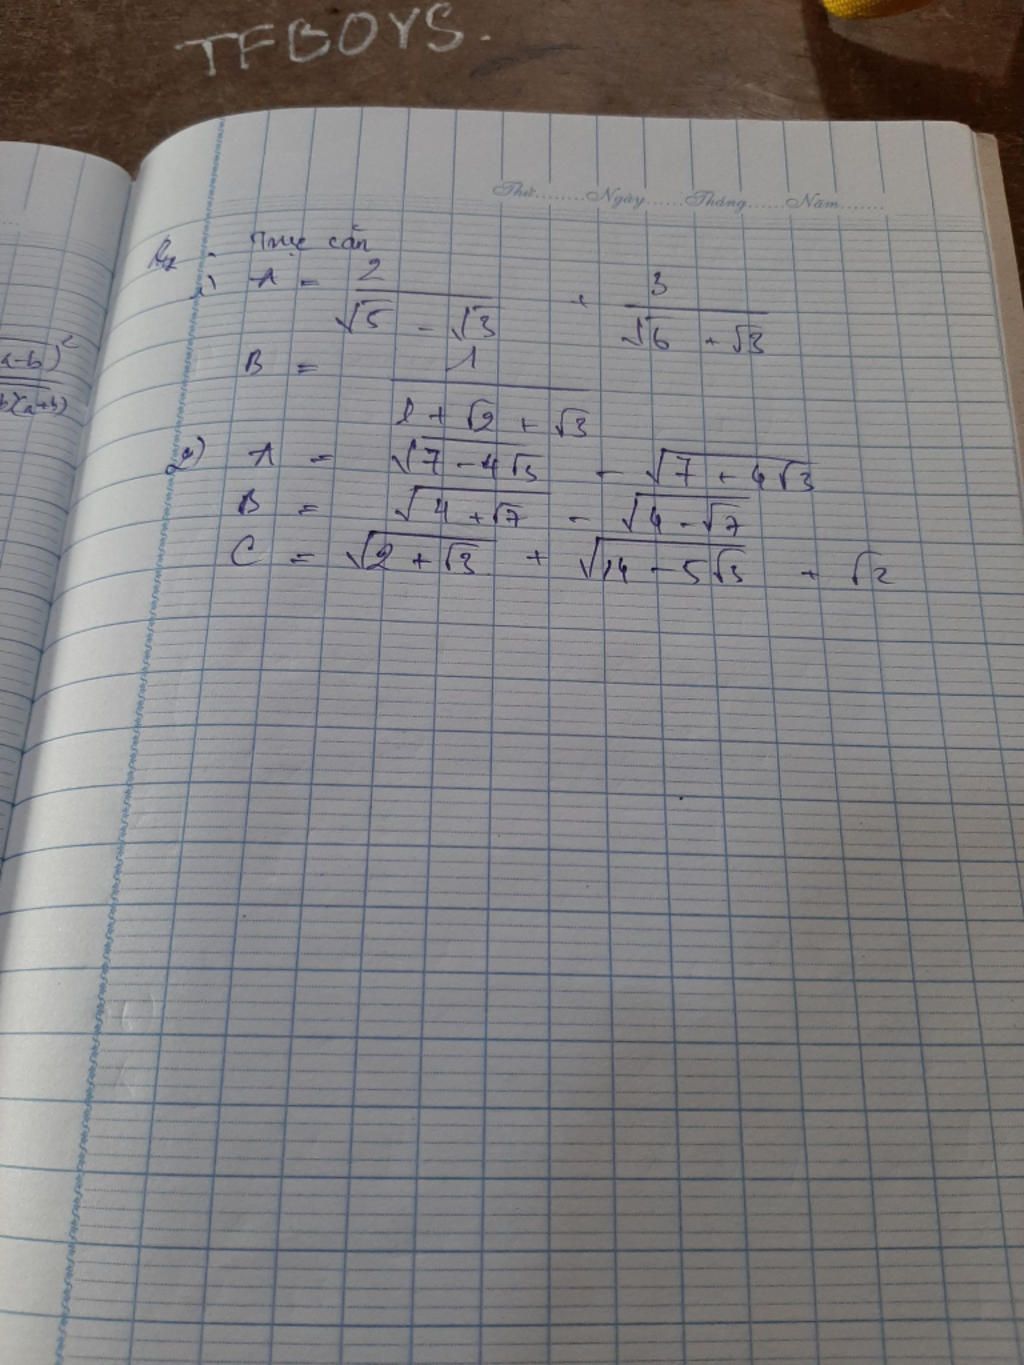 TFBOYS.
Thứ........Ngày......Tháng......Năm.......
Trục căn
1) A = 2/(√5 - √3) + 3/(√6 + √3)
B = 1/(1 + √2 + √3)
2) A = √(7 - 4√3) - √(7 + 4√3)
B = √(4 + √7) - √(4 - √7)
C = √(2 + √3) + √(14 - 5√3) + √2
a-b)²
b)(a+b)